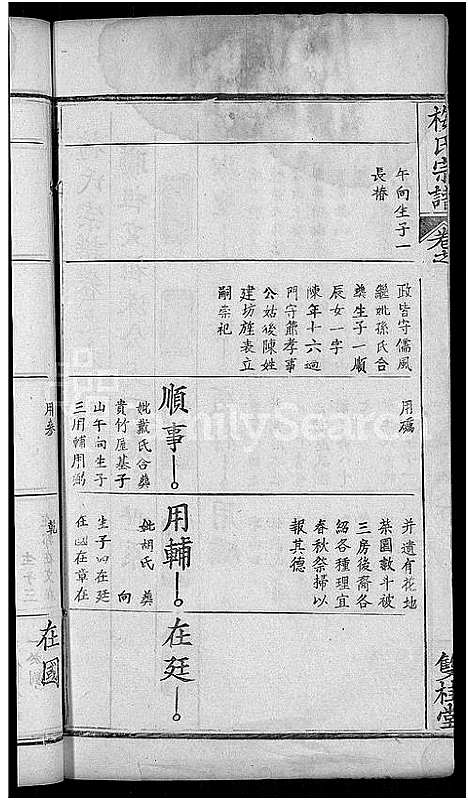 梅氏宗譜
卷之
雙桂堂
午向生子一
長椿
政皆守儒風
繼妣孫氏合
葬生子一順
辰女一字
陳年十六過
門守節孝事
公姑後陳姓
建坊旌表立
嗣崇祀
用礪
順事
妣戴氏合葬
貴竹屋基子
山午向生子
三用輔用弼
用券
并遺有花地
菜園數斗被
三房後裔各
紹各種理宜
春秋祭掃以
報其德
用輔
妣胡氏 葬
向
生子四在廷
在國在章在
乾
在廷
在國
FamilySearch